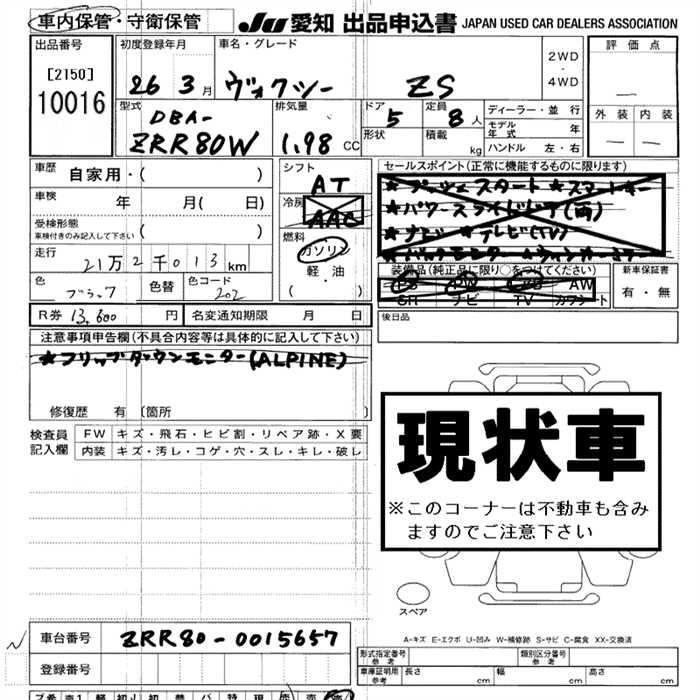 車内保管・守衛保管 JU 愛知 出品申込書 JAPAN USED CAR DEALERS ASSOCIATION
出品番号 初度登録年月 車名・グレード 評価点
[2150] 26 3月 ヴォクシー ZS 2WD・4WD
10016
型式 排気量 ドア 定員 ディーラー・並行 外装 内装
DBA-
ZRR80W 1.98 CC 5 8人 モデル年式 年
形状 積載 kg ハンドル 左・右
車歴 自家用・( ) シフト AT セールスポイント(正常に機能するものに限ります)
車検 年 月( 日) 冷房 AAC ★プッシュスタート ★スマートキー
受検形態 ( ) ★パワースライドドア(両)
車検付きのみ記入して下さい 燃料 ★ナビ ★テレビ(TV)
走行 21万2千013km ガソリン ★バックモニター
軽油 装備品(純正品に限り○をつけてください) 新車保証書
色 ブラック 色替 色コード 202 ( ・ ) PS PW AW 有・無
SR ナビ TV カワシート
R券 13,600 円 名変通知期限 月 日 後日品
注意事項申告欄(不具合内容等は具体的に記入して下さい)
★フリップダウンモニター(ALPINE)
修復歴 有 〔箇所
検査員記入欄 FW キズ・飛石・ヒビ割・リペア跡・X要
内装 キズ・汚レ・コゲ・穴・スレ・キレ・破レ
現状車
※このコーナーは不動車も含み
ますのでご注意下さい
スペア
A-キズ E-エクボ U-凹み W-補修跡 S-サビ C-腐食 XX-交換済
車台番号 ZRR80-0015657
形式指定番号 参考 類別区分番号 参考
登録番号 車庫証明用 参考 長さ cm 幅 cm 高さ cm